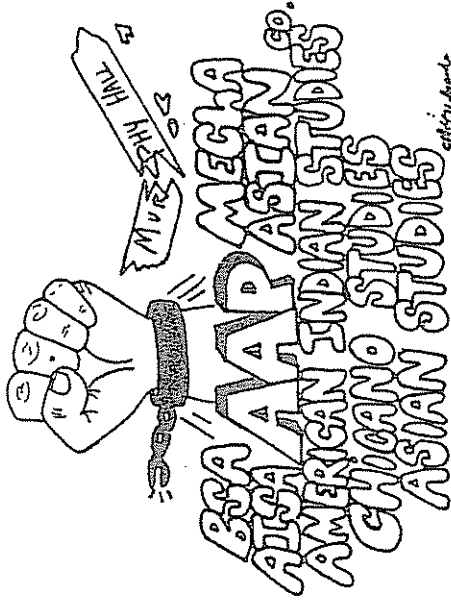 MURPHY HALL
BSA
AISA
AAP
MECHA
ASIAN CO.
AMERICAN INDIAN STUDIES
CHICANO STUDIES
ASIAN STUDIES